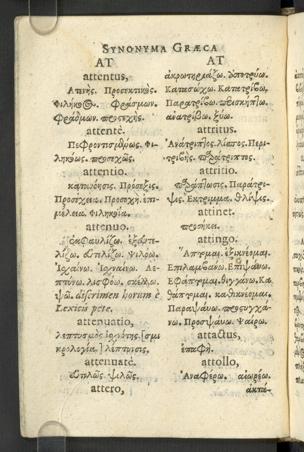 SYNONYMA GRÆCA
AT
attentus,
Ἀτενής. Προσεκτικός.
Φιλήκοος. Φράσμων.
Φράδμων. περιεχής.
attentè.
Πεφροντισμένως. Φι-
ληκόως. προσεχῶς.
attentio.
κατανόησις. Πρόσεξις.
Προσοχή. ἐπι-
μέλεια. Φιληκοΐα.
attenuo.
λίζω. ἁπλίζω. Ψιλόω.
Ἰσχαίνω. Ἰσχναίνω. Λε-
πτύνω.
discrimen horum è
Lexicis pete.
attenuatio,
λεπτυσμὸς ἰσχνότης. [σμι
κρολογία.] λέπτυσις.
attenuatè.
ἁπλῶς. ψιλῶς.
attero,
AT
ἀκρωτηριάζω.
Κατασώχω. Κατατρίβω.
Παρατρίβω.
διατρίβω. ξύω.
attritus.
Ἀνάτριπτος. λίσπος. Περι-
τριβής. παράτριπτος.
attritio.
Παράτρι-
ψις. Εκτριμμα. Θλίψις.
attinet.
προσήκει.
attingo.
Ἅπτομαι. ἐξικνέομαι.
Επιλαμβάνω. Επιψάνω.
Εφάπτομαι. θιγγάνω. Κα
θάπτομαι. καθικνέομαι.
Παραψάνω. περιτυγχά-
νω. Προσψάνω. Ψαίρω.
attactus,
ἐπαφή.
attollo,
Ἀναφέρω. αἰωρέω.
ἀκτα-